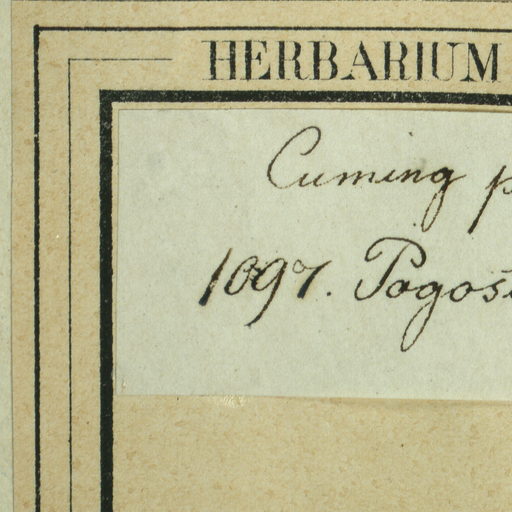 HERBARIUM
Cuming p
1097. Pogos